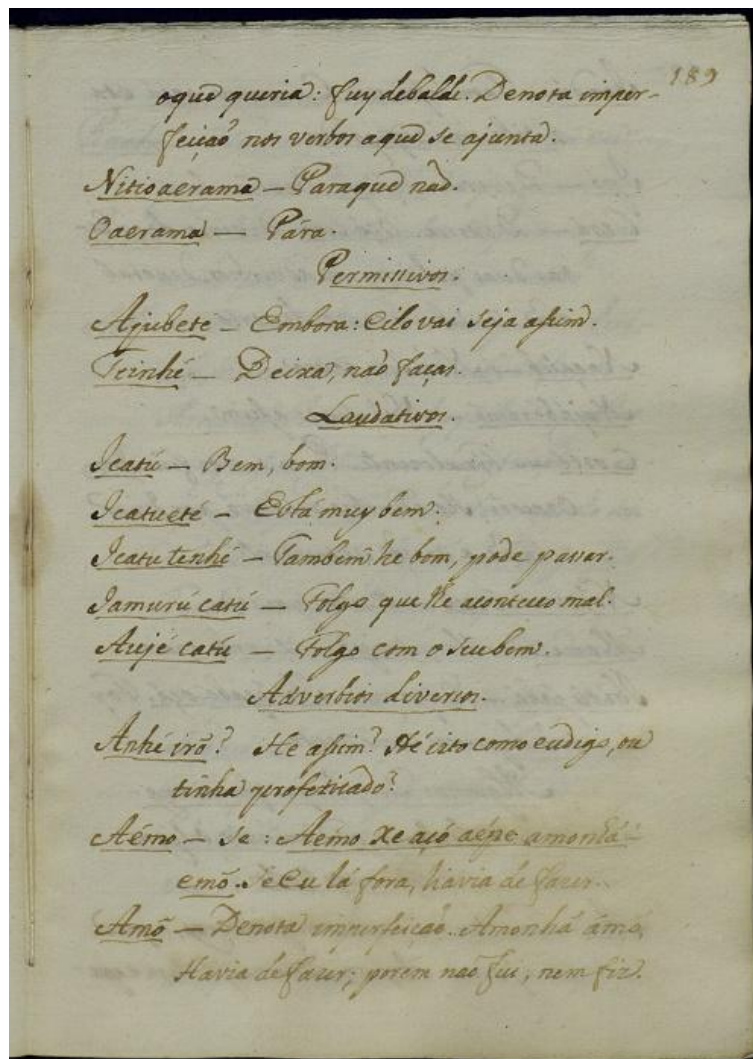 189
oque queria: fuy debalde. Denota imper-
feição nos verbos aque se ajunta.
Nitioaerama – Paraque não.
Oaerama — Pára.
Permissivos.
Ajubete – Embora: e ilo vai seja assim.
Teinhé – Deixa, não faças.
Laudativos.
Icatú – Bem, bom.
Icatueté – Está muy bem.
Icatu tenhé – Tambem he bom, pode passar.
Iamurú catú – Folgo que lhe aconteceo mal.
Aujé catú – Folgo com o seu bem.
Adverbios diversos.
Anhé irõ? He assim? Hé isto como eu digo, ou
tinha profeticado?
Aémo – se: Aemo xe açó aépe amonhá-
emõ. Se Eu lá fora, havia de fazer.
Amõ – Denota imperfeição. Amonhá ámo,
Havia de fazer; porem não fui, nem fiz.